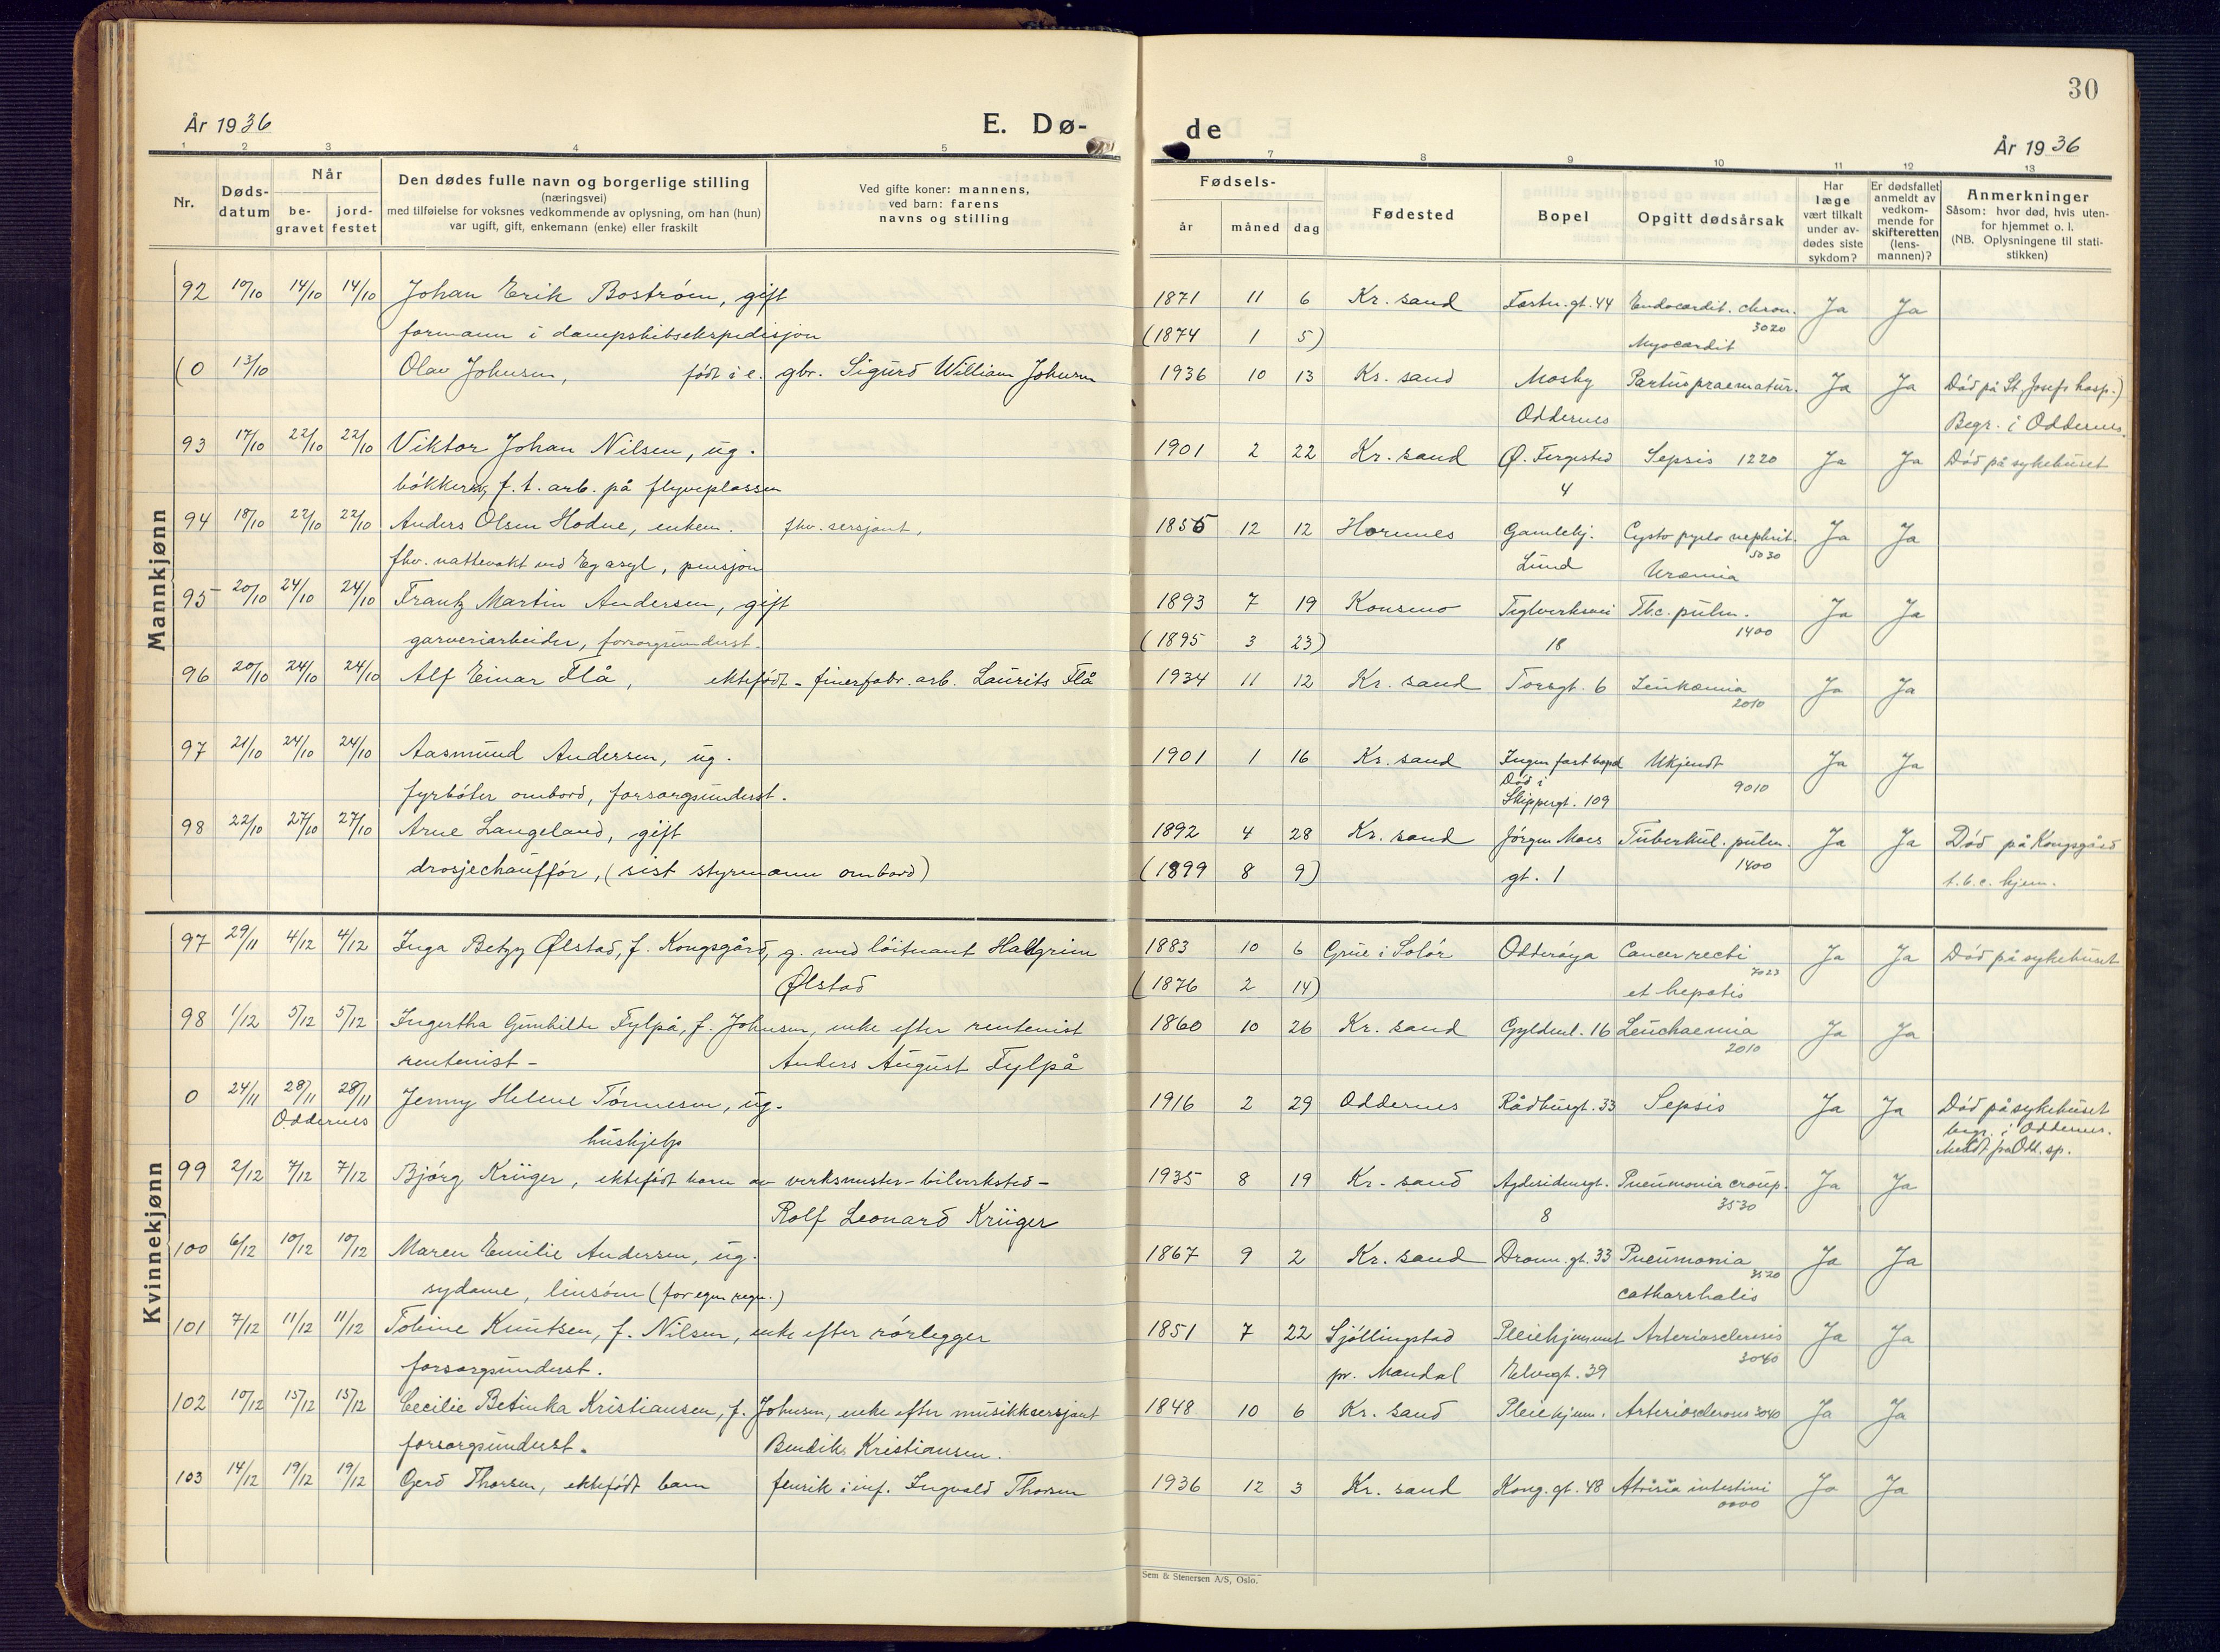 30
År 1936
E. Dø-
de
År 1936
1 2 3 4 5 7 8 9 10 11 12 13
Nr.
Døds-
datum
Når
be-
gravet
jord-
festet
Den dødes fulle navn og borgerlige stilling
(næringsvei)
med tilføielse for voksnes vedkommende av oplysning, om han (hun)
var ugift, gift, enkemann (enke) eller fraskilt
Ved gifte koner: mannens,
ved barn: farens
navns og stilling
Fødsels-
år måned dag
Fødested
Bopel
Opgitt dødsårsak
Har
læge
vært tilkalt
under av-
dødes siste
sykdom?
Er dødsfallet
anmeldt av
vedkom-
mende for
skifteretten
(lens-
mannen)?
Anmerkninger
Såsom: hvor død, hvis uten-
for hjemmet o. l.
(NB. Oplysningene til stati-
stikken)
Mannkjønn
92 10/10 14/10 14/10 Johan Erik Bostrøm, gift 1871 11 6 Kr. sand Festn.gt. 44 Endocardit. chron. Ja Ja
formann i dampskibsekspedisjon (1874 1 5) 3020
Myocardit
(0 13/10 Olav Johnsen, født i e. gbr. Sigurd William Johnsen 1936 10 13 Kr. sand Mosby Partus praematur. Ja Ja Död på St. Josefs hosp.)
Oddernes Begr. i Oddernes.
93 17/10 22/10 22/10 Viktor Johan Nilsen, ug. 1901 2 22 Kr. sand Ø. Fergested Sepsis 1220 Ja Ja Död på sykehuset
bökker, f. t. arb. på flyveplassen 4
94 18/10 22/10 22/10 Anders Olsen Hodne, enkem. fhv. sersjant, 1855 12 12 Hornnes Gamlehj. Cysto pyelo nephrit. Ja Ja
fhv. nattevakt ved Eg asyl, pensjon Lund 5030
Uræmia
95 20/10 24/10 24/10 Frantz Martin Andersen, gift 1893 7 19 Konsmo Teglverksvei Tbc. pulm. Ja Ja
garveriarbeider, forsorgsunderst. (1895 3 23) 18 1400
96 20/10 24/10 24/10 Alf Einar Flå, ektefødt - finerfabr. arb. Laurits Flå 1934 11 12 Kr. sand Torsgt. 6 Leukæmia Ja Ja
2010
97 21/10 24/10 24/10 Aasmund Andersen, ug. 1901 1 16 Kr. sand Ingen fast bopel Ukjendt Ja Ja
Död i
fyrböter ombord, forsorgsunderst. Skippergt. 109 9010
98 22/10 27/10 27/10 Arne Langeland, gift 1892 4 28 Kr. sand Jörgen Moes Tuberkul. pulm. Ja Ja Död på Kongsgård
drosjechauffør, (sist styrmann ombord) (1899 8 9) gt. 1 1400 t.b.c. hjem.
Kvinnekjønn
97 29/11 4/12 4/12 Inga Betzy Ølstad, f. Kongsgård, g. med löitnant Hallgrim 1883 10 6 Grue i Solør Odderøya Cancer recti Ja Ja Död på sykehuset
Ølstad (1876 2 14) et hepatis
98 1/12 5/12 5/12 Ingertha Gunhilde Fylpå, f. Johnsen, enke efter rentenist 1860 10 26 Kr. sand Gyldenl. 16 Leuchaemia Ja Ja
rentenist - Anders August Fylpå 2010
0 24/11 28/11 28/11 Jenny Helene Tönnesen, ug. 1916 2 29 Oddernes Rådhusgt. 33 Sepsis Ja Ja Död på sykehuset
Oddernes begr. i Oddernes.
hushjelp Meldt fra Odd. sp.
99 2/12 7/12 7/12 Bjørg Krüger, ektefødt barn av verksmester - bilverksted - 1935 8 19 Kr. sand Agdeidensgt. Pneumonia croup. Ja Ja
Rolf Leonard Krüger 8 3530
100 6/12 10/12 10/12 Maren Emilie Andersen, ug. 1867 9 2 Kr. sand Dronn. gt. 33 Pneumonia Ja Ja
3520
sydame, linsöm (for egen regn.) catharrhalis
101 7/12 11/12 11/12 Tobine Knutsen, f. Nilsen, enke efter rörlegger 1851 7 22 Sjöllingstad Pleiehjemmet Arteriosclerosis Ja Ja
forsorgsunderst. pr. Mandal Elvegt. 39 3040
102 10/12 15/12 15/12 Cecilie Betinka Kristiansen, f. Johnsen, enke efter musikksersjant 1848 10 6 Kr. sand Pleiehjem. Arteriosclerosis 3040 Ja Ja
forsorgsunderst. Bendiks Kristiansen.
103 14/12 19/12 19/12 Gerd Thorsen, ektefødt barn fenrik i inf. Ingvald Thorsen 1936 12 3 Kr. sand Kong. gt. 48 Atresia intestini Ja Ja
0000
Sem & Stenersen A/S, Oslo.